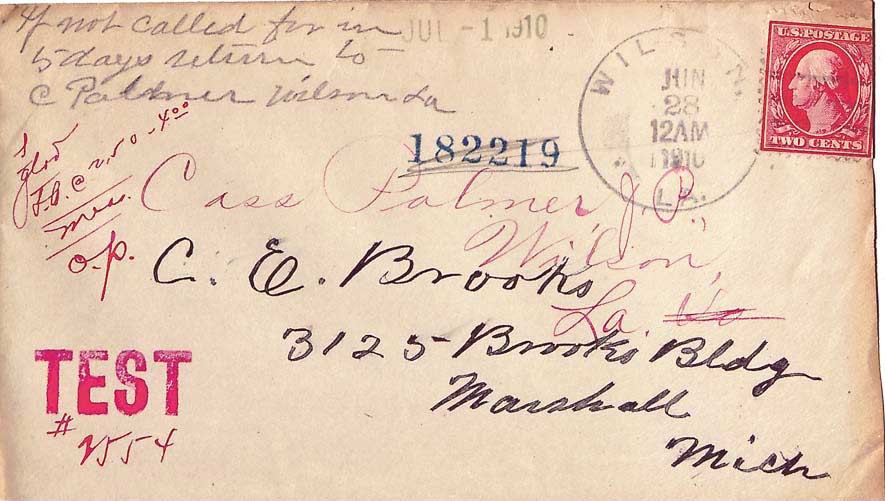 If not called for in
5 days return to
C Palmer Wilson La
JUL -1 1910
WILSON
JUN
28
12AM
1910
LA.
U.S. POSTAGE
TWO CENTS
182219
F.O. @ 2.50 - 4.00
meas.
o.p.
Cass Palmer J.P.
Wilson,
La.
C. E. Brooks
3125 Brooks Bldg
Marshall
Mich
TEST
# 2554